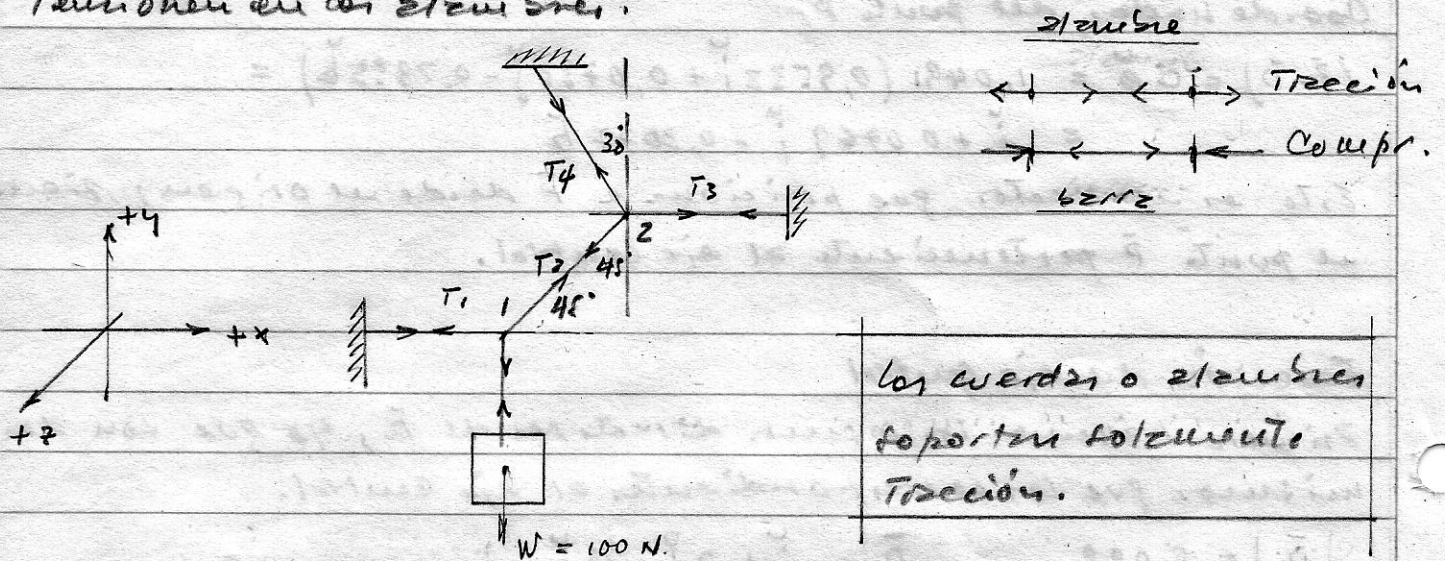 Tensiones en los alambres.
alambre
Tracción
Compr.
barra
30°
T4
T3
2
T2
45°
45°
T1
1
+y
+x
+z
W = 100 N.
Las cuerdas o alambres
soportan solamente
Tracción.